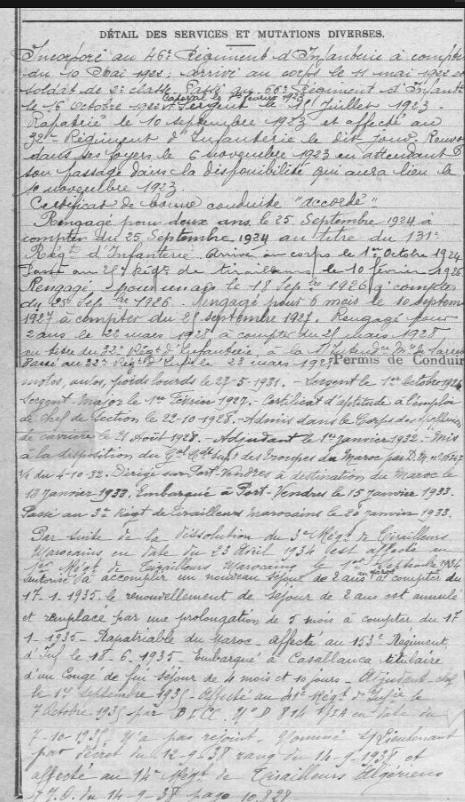 DÉTAIL DES SERVICES ET MUTATIONS DIVERSES.
Incorporé au 46e Régiment d'Infanterie à compter
du 10 Mai 1922. Arrivé au corps le 11 mai 1922 et
soldat de 2e classe. Passé au 66e Régiment d'Infant
le 15 octobre 1922. Sergent le Juillet 1923.
Caporal le février 1923
Rapatrié le 10 septembre 1923 et affecté au
32e Régiment d'Infanterie le dit jour. Renvoyé
dans ses foyers le 6 novembre 1923 en attendant
son passage dans la disponibilité qui aura lieu le
10 novembre 1923.
Certificat de bonne conduite "accordé"
Rengagé pour deux ans le 25 Septembre 1924 à
compter du 25 Septembre 1924 au titre du 131e
Régt d'Infanterie. Arrivé au corps le 1er Octobre 1924
Passé au 28e Régt de tirailleurs le 10 février 1926
Rengagé pour un an le 18 Sep 1926 à compter
du 25 Sepbre 1926. Rengagé pour 6 mois le 10 septem
1927 à compter du 25 septembre 1927. Rengagé pour
2 ans le 22 mars 1928 à compter du 25 mars 1928
au titre du 32e Régt d'Infanterie, à la
Passé au 32e Régt le 23 mars 1928 Permis de Conduir
motos, autos, poids lourds le 27-5-1931. - Sergent le 1er Octobre 1924
Sergent Major le 1er Février 1927. - Certificat d'aptitude à l'emploi
de chef de Section le 22-10-1928. - Admis dans le Corps des
de carrière le 21 Août 1928. - Adjudant le 1er Janvier 1932. - Mis
à la disposition du Gal Ct Supr des Troupes du Maroc par D.M. n°
du 4-10-32. Dirigé sur Port-Vendres à destination du Maroc le
13 Janvier 1933. Embarqué à Port-Vendres le 15 janvier 1933.
Passé au 3e Régt de Tirailleurs Marocains le 20 janvier 1933.
Par suite de la dissolution du 3e Régt de Tirailleurs
Marocains en date du 23 Avril 1934 est affecté au
1er Régt de Tirailleurs Marocains le 1er Septembre 1934
Autorisé à accomplir un nouveau séjour de 2 ans au Maroc à compter du
17.1.1935. le renouvellement de séjour de 2 ans est annulé
et remplacé par une prolongation de 5 mois à compter du 17
1-1935 - Rapatriable du Maroc - affecté au 153e Régiment
d'Inf le 18-6-1935 - Embarqué à Casablanca titulaire
d'un Congé de fin séjour de 4 mois et 10 jours - Adjudant chef
le 1er septembre 1935 - Affecté au Régt d'Infie le
7 Octobre 1935 par D.E.C.C. N° D 814 1/IA en date du
7-10-1935 N'a pas rejoint. Nommé S/Lieutenant
par décret du 12-9-38 rang du 14-9-1938 et
affecté au 14e Régt de Tirailleurs Algériens
J.O. du 14-9-38 page 10.828